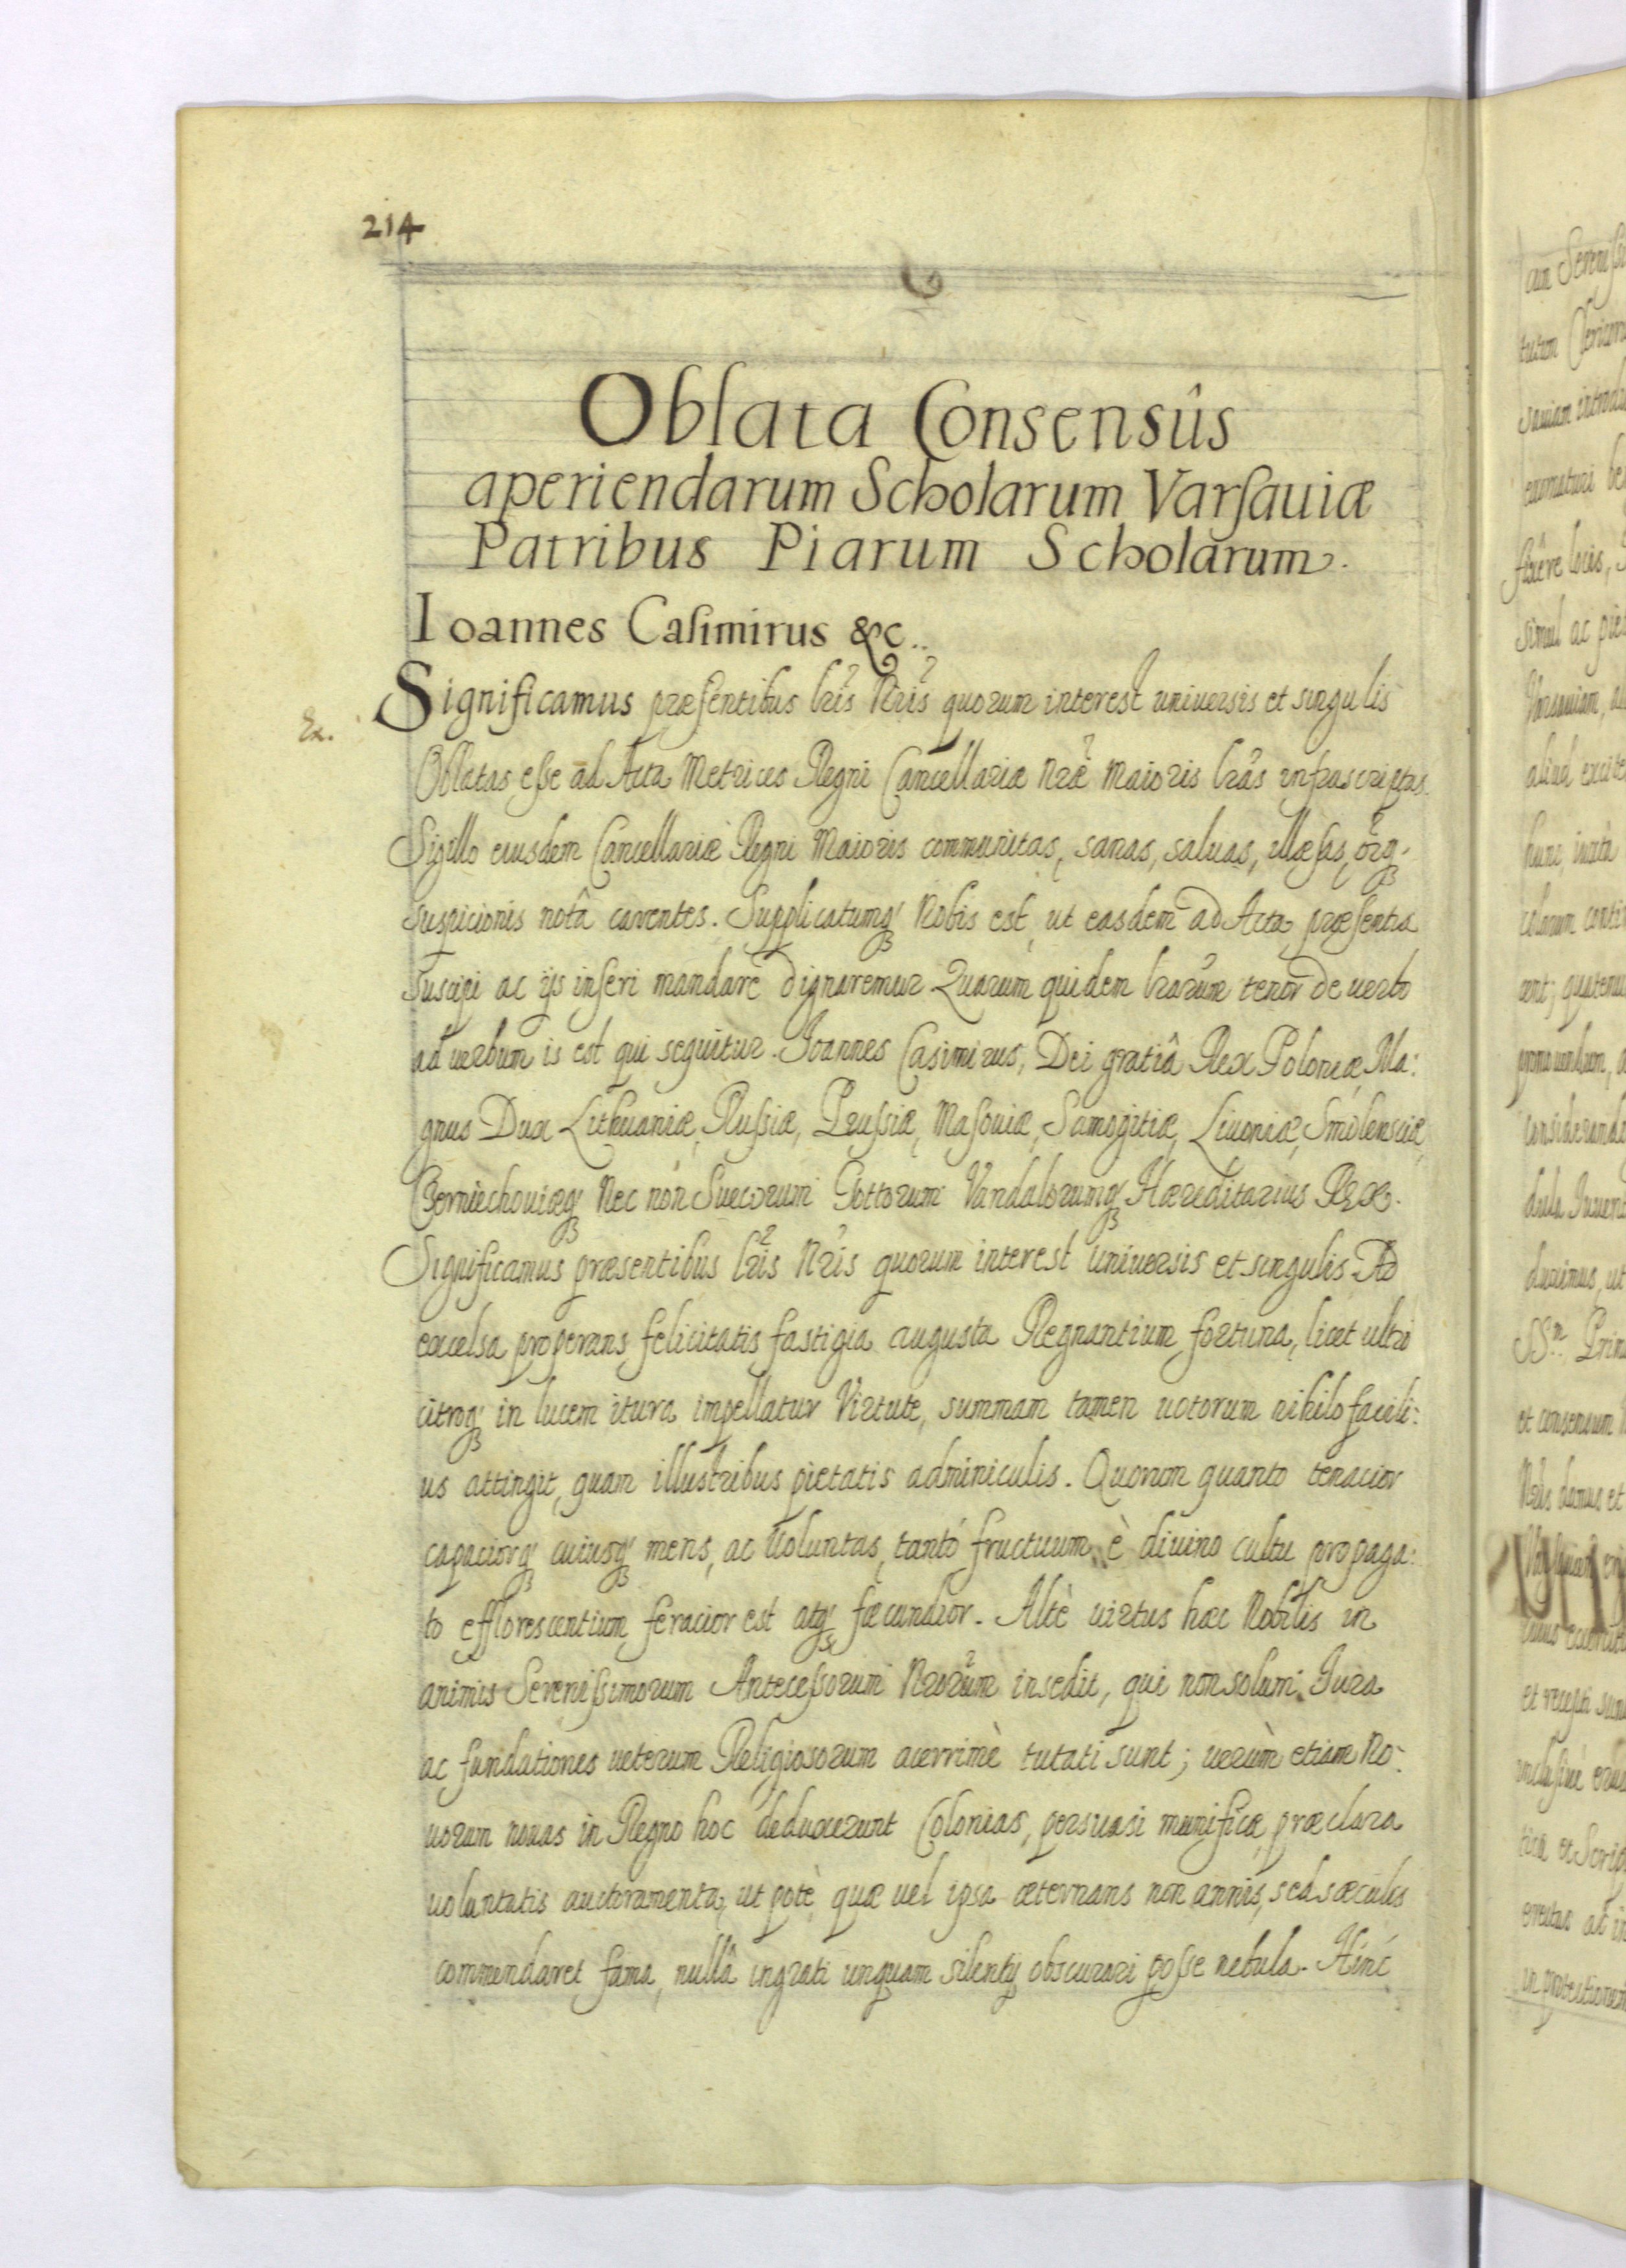 214
Oblata Consensûs
aperiendarum Scholarum Varſauiæ
Patribus Piarum Scholarum.
Ioannes Caſimirus &c..
Ex.
Significamus præſentibus lris Nris quorum interest uniuersis et singulis
Oblatas eſse ad Acta Metrices Regni Cancellariæ Nræ Maioris lras infrascriptas.
Sigillo eiusdem Cancellariæ Regni Maioris communitas, sanas, saluas, illæsas, oiq;
suspicionis notâ carentes. Supplicatumq; Nobis est, ut easdem ad Acta præſentia
suscipi ac ijs inſeri mandare dignaremur Quarum quidem lrarum tenor de uerbo
ad uerbum is est qui sequitur. Ioannes Casimirus, Dei gratiâ Rex Poloniæ, Ma:
gnus Dux Lithuaniæ, Ruſsiæ, Pruſsiæ, Maſouiæ, Samogitiæ, Liuoniæ, Smolensciæ,
Czerniechouiæq; Nec non Suecorum Gottorum Vandalorumq; Hæreditarius Rex.
Significamus præsentibus lris Nris quorum interest uniuersis et singulis Ad
excelsa properans felicitatis fastigia augusta Regnantium fortuna, licet ultro
citroq; in lucem itura impellatur Virtute, summam tamen uotorum nihilo facili:
us attingit, quam illustribus pietatis adminiculis. Quorum quanto tenacior
capaciorq; cuiusq; mens, ac uoluntas, tantó fructuum è diuino cultu propaga:
to efflorescentium feracior est atq; fæcundior. Altè uirtus hæc Nobilis in
animis Sereniſsimorum Anteceſsorum Nrorum insedit, qui non solum Iura
ac fundationes ueterum Religiosorum acerrimè tutati sunt; uerùm etiam No:
uorum nouas in Regno hoc deduxerunt Colonias, persuasi munificæ, præclara
uoluntatis auctoramenta, ut potè, quæ uel ipsa æternans non annis, sed sæculis
commendaret fama, nullâ ingrati unquam silentij obscurari poſse nebula. Hinc